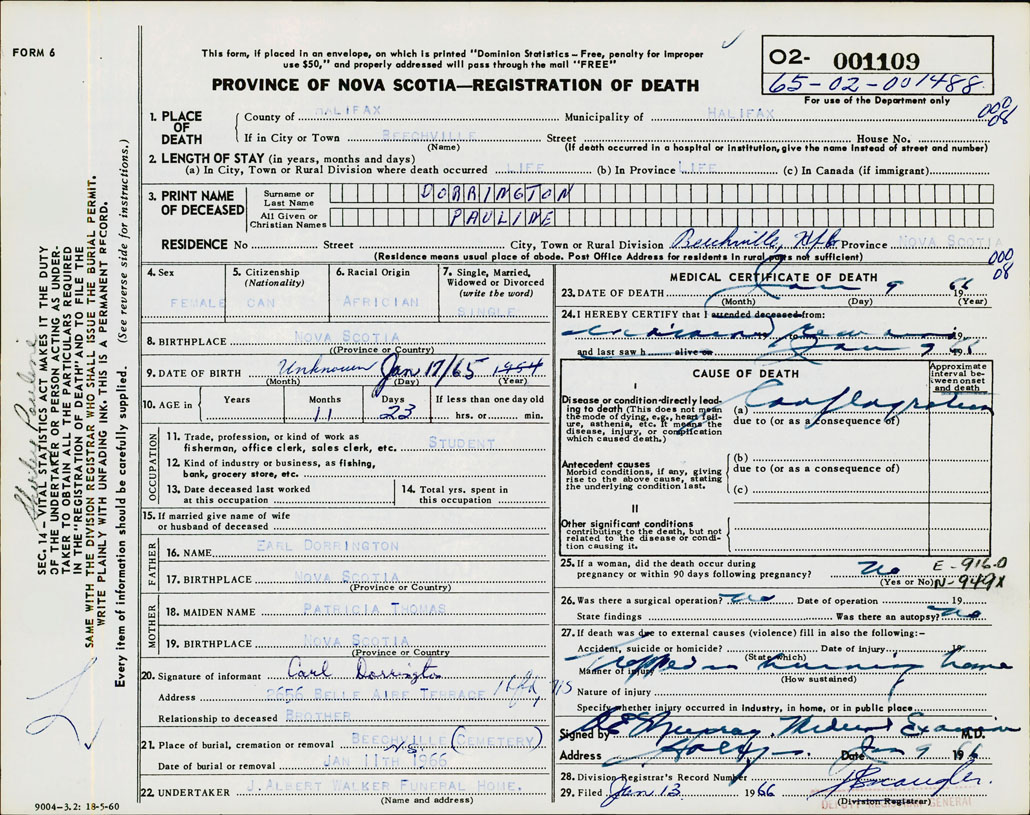 FORM 6
This form, if placed in an envelope, on which is printed "Dominion Statistics – Free, penalty for improper
use $50," and properly addressed will pass through the mail "FREE"
PROVINCE OF NOVA SCOTIA—REGISTRATION OF DEATH
O2- 001109
65-02-001488
For use of the Department only
000
08
1. PLACE OF DEATH
County of HALIFAX Municipality of HALIFAX
If in City or Town BEECHVILLE Street House No.
(Name) (If death occurred in a hospital or institution, give the name instead of street and number)
2. LENGTH OF STAY (in years, months and days)
(a) In City, Town or Rural Division where death occurred LIFE (b) In Province LIFE (c) In Canada (if immigrant)
3. PRINT NAME OF DECEASED
Surname or Last Name DORRINGTON
All Given or Christian Names PAULINE
RESIDENCE No Street City, Town or Rural Division Beechville, Hfx Province NOVA SCOTIA
(Residence means usual place of abode. Post Office Address for residents in rural parts not sufficient)
000
08
4. Sex
FEMALE
5. Citizenship
(Nationality)
CAN
6. Racial Origin
AFRICIAN
7. Single, Married,
Widowed or Divorced
(write the word)
SINGLE
8. BIRTHPLACE NOVA SCOTIA
(Province or Country)
9. DATE OF BIRTH Unknown Jan 17/65 1964
(Month) (Day) (Year)
10. AGE in Years Months Days If less than one day old
11 23 hrs. or min.
OCCUPATION
11. Trade, profession, or kind of work as
fisherman, office clerk, sales clerk, etc. STUDENT
12. Kind of industry or business, as fishing,
bank, grocery store, etc.
13. Date deceased last worked
at this occupation
14. Total yrs. spent in
this occupation
15. If married give name of wife
or husband of deceased
FATHER
16. NAME EARL DORRINGTON
17. BIRTHPLACE NOVA SCOTIA
(Province or Country)
MOTHER
18. MAIDEN NAME PATRICIA THOMAS
19. BIRTHPLACE NOVA SCOTIA
(Province or Country)
20. Signature of informant Carl Dorrington
Address 2656 BELLE AIRE TERRACE Hfx NS
Relationship to deceased BROTHER
21. Place of burial, cremation or removal BEECHVILLE N.S. (CEMETERY)
Date of burial or removal JAN 11TH 1966
22. UNDERTAKER J. ALBERT WALKER FUNERAL HOME.
(Name and address)
9004-3.2: 18-5-60
MEDICAL CERTIFICATE OF DEATH
23. DATE OF DEATH Jan 9 1966
(Month) (Day) (Year)
24. I HEREBY CERTIFY that I attended deceased from:
19
and last saw h alive on Jan 9 1966
CAUSE OF DEATH
Approximate interval between onset and death
I
Disease or condition directly leading to death (This does not mean the mode of dying, e.g., heart failure, asthenia, etc. It means the disease, injury, or complication which caused death.)
(a) Conflagration
due to (or as a consequence of)
Antecedent causes
Morbid conditions, if any, giving rise to the above cause, stating the underlying condition last.
(b)
due to (or as a consequence of)
(c)
II
Other significant conditions
contributing to the death, but not related to the disease or condition causing it.
25. If a woman, did the death occur during
pregnancy or within 90 days following pregnancy? No
(Yes or No)
E-916.0
N-949X
26. Was there a surgical operation? No Date of operation 19
State findings Was there an autopsy? No
27. If death was due to external causes (violence) fill in also the following:–
Accident, suicide or homicide? Date of injury 19
(State which)
Manner of injury Trapped in burning home
(How sustained)
Nature of injury
Specify whether injury occurred in industry, in home, or in public place
Signed by Murray Medical Examiner M.D.
Address Date Jan 9 1966
28. Division Registrar's Record Number
29. Filed Jan 13 1966
(Division Registrar)
DEPUTY REGISTRAR GENERAL
SEC. 14 – VITAL STATISTICS ACT MAKES IT THE DUTY
OF THE UNDERTAKER OR PERSON ACTING AS UNDER-
TAKER TO OBTAIN ALL THE PARTICULARS REQUIRED
IN THE "REGISTRATION OF DEATH" AND TO FILE THE
SAME WITH THE DIVISION REGISTRAR WHO SHALL ISSUE THE BURIAL PERMIT.
WRITE PLAINLY WITH UNFADING INK. THIS IS A PERMANENT RECORD.
Every item of information should be carefully supplied. (See reverse side for instructions.)